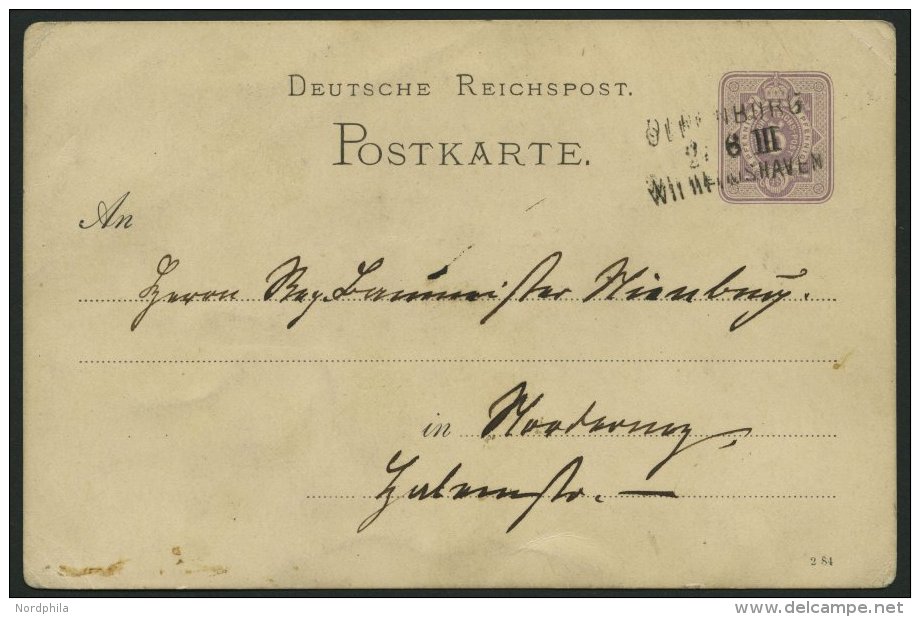 DEUTSCHE REICHSPOST.
POSTKARTE.
OLDENBURG
2. 6 III
WILHELMSHAVEN
An
Herrn Reg. Baumeister Nienburg.
in Norderney,
2 84
Nordphila
www.delcampe.net